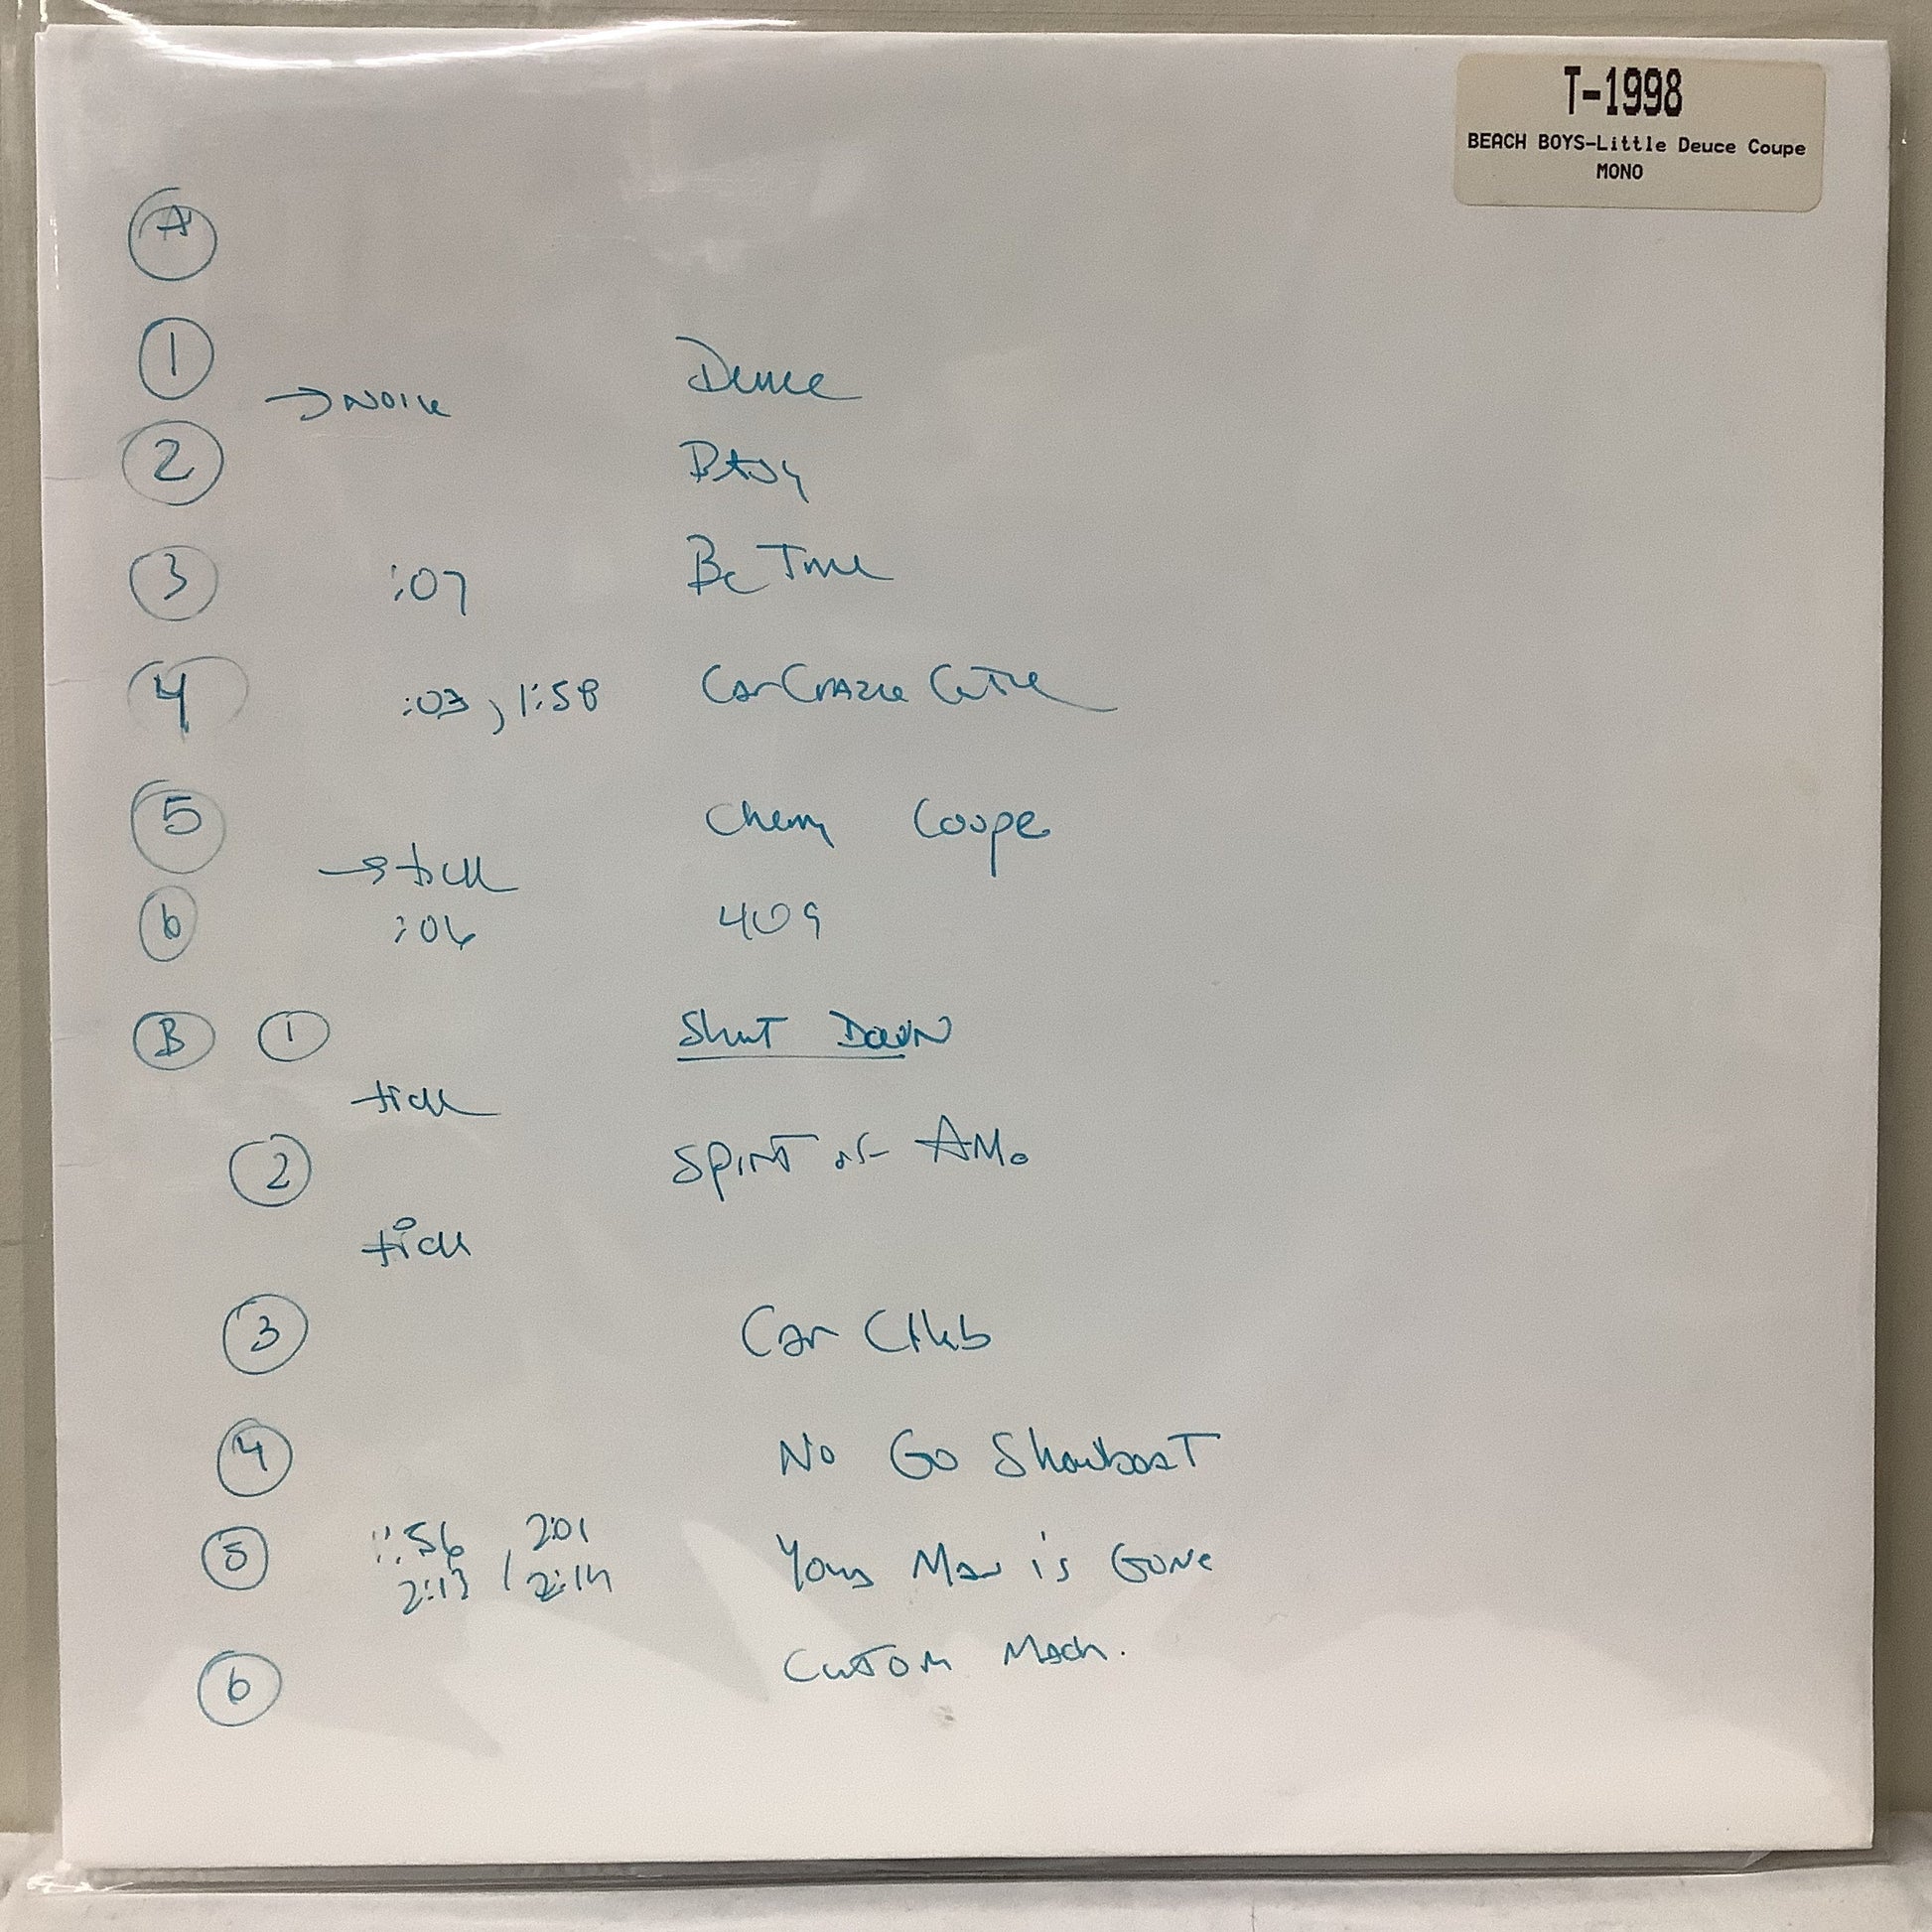 T-1998
BEACH BOYS-Little Deuce Coupe
MONO
A
1 Deuce
→ NOISE
2 Betsy
3 :07 Be True
4 :03, 1:58 Car Crazie Cutie
5 Cherry Coupe
→ tick
6 :06 409
B 1 Shut Down
tick
2 Spirit of AM.
tick
3 Car Club
4 No Go Showboat
5 1:56, 2:01 Young Man is Gone
2:13 / 2:14
6 Custom Mach.